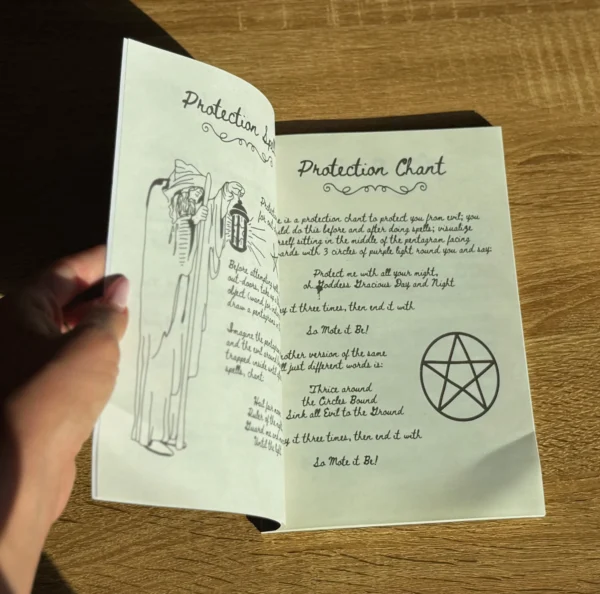 Protection Spell
Protection
for out
Before attending
out-doors, take
object (wand for
draw a pentagram
Imagine the pentagram
and the evil around
trapped inside
spells, chant:
Wait for
Ruler of the
Guard me and
Until the light
Protection Chant
e is a protection chant to protect you from evil; you
uld do this before and after doing spells; visualize
rself sitting in the middle of the pentagram facing
ards with 3 circles of purple light round you and say:
Protect me with all your might,
oh Goddess Gracious Day and Night
ay it three times, then end it with
So Mote it Be!
nother version of the same
ll just different words is:
Thrice around
the Circles Bound
Sink all Evil to the Ground
ay it three times, then end it with
So Mote it Be!